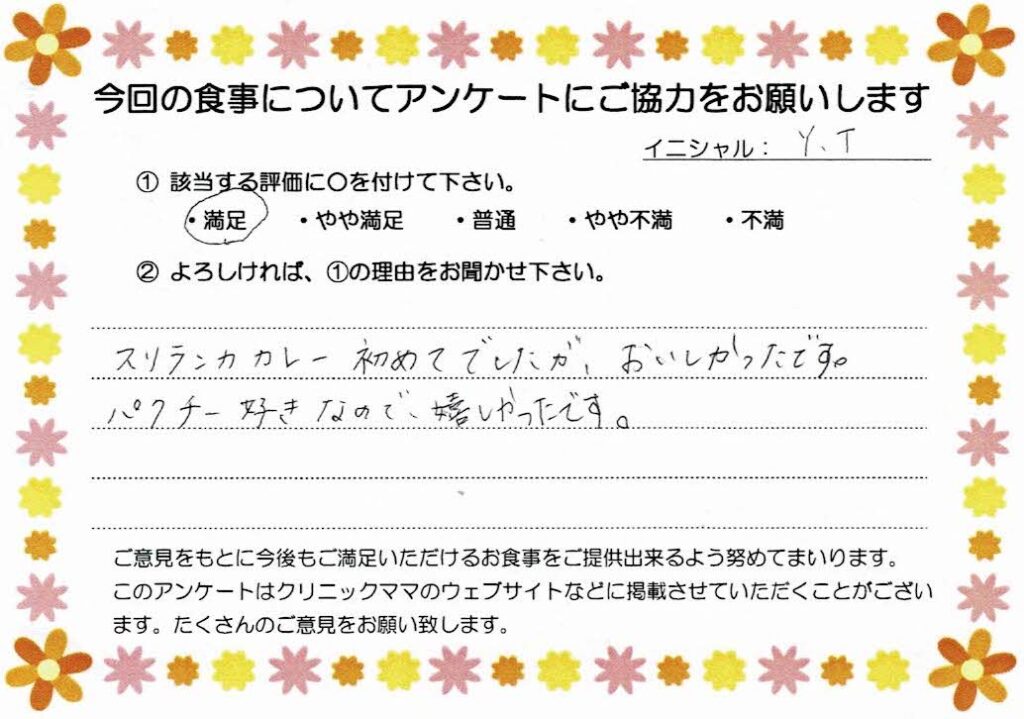 今回の食事についてアンケートにご協力をお願いします
イニシャル： Y.T
① 該当する評価に〇を付けて下さい。
・満足 ・やや満足 ・普通 ・やや不満 ・不満
② よろしければ、①の理由をお聞かせ下さい。
スリランカカレー初めてでしたが、おいしかったです。
パクチー好きなので、嬉しかったです。
ご意見をもとに今後もご満足いただけるお食事をご提供出来るよう努めてまいります。
このアンケートはクリニックママのウェブサイトなどに掲載させていただくことがござい
ます。たくさんのご意見をお願い致します。